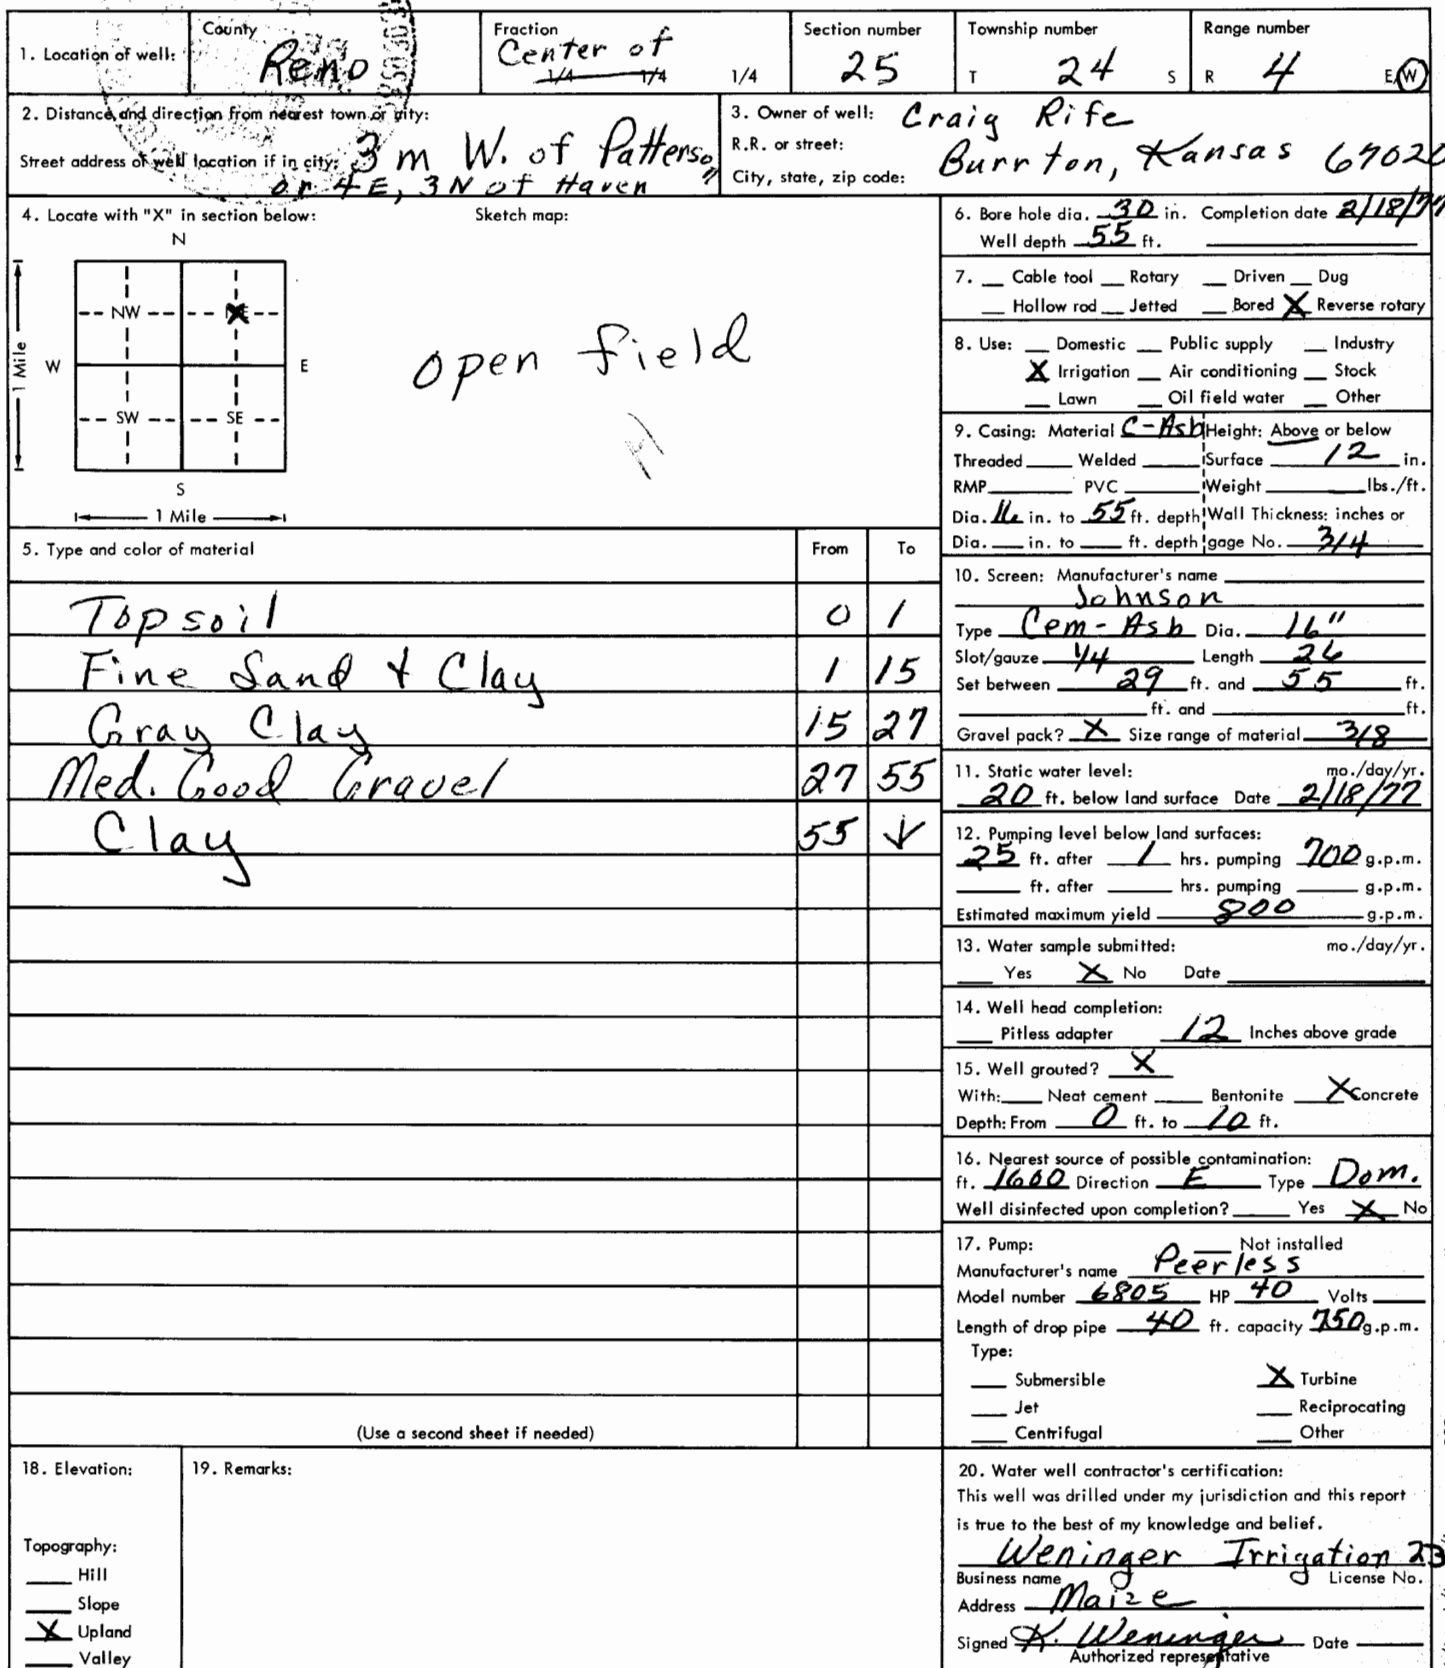 1. Location of well: County Reno Fraction Center of 1/4 1/4 1/4 Section number 25 Township number T 24 S Range number R 4 E/W
2. Distance and direction from nearest town or city: 3 m W. of Patterson
Street address of well location if in city: or 4 E, 3 N of Haven
3. Owner of well: Craig Rife
R.R. or street:
City, state, zip code: Burrton, Kansas 67020
4. Locate with "X" in section below: Sketch map:
N
NW
W E
SW SE
S
1 Mile
1 Mile
open field
5. Type and color of material From To
Topsoil 0 1
Fine Sand + Clay 1 15
Gray Clay 15 27
Med. Good Gravel 27 55
Clay 55 ↓
(Use a second sheet if needed)
6. Bore hole dia. 30 in. Completion date 2/18/77
Well depth 55 ft.
7. __ Cable tool __ Rotary __ Driven __ Dug
__ Hollow rod __ Jetted __ Bored X Reverse rotary
8. Use: __ Domestic __ Public supply __ Industry
X Irrigation __ Air conditioning __ Stock
__ Lawn __ Oil field water __ Other
9. Casing: Material C-Asb Height: Above or below
Threaded ___ Welded ___ Surface 12 in.
RMP ___ PVC ___ Weight ___ lbs./ft.
Dia. 16 in. to 55 ft. depth Wall Thickness: inches or
Dia. ___ in. to ___ ft. depth gage No. 3/4
10. Screen: Manufacturer's name
Johnson
Type Cem-Asb Dia. 16"
Slot/gauze 1/4 Length 26
Set between 29 ft. and 55 ft.
___ ft. and ___ ft.
Gravel pack? X Size range of material 3/8
11. Static water level: mo./day/yr.
20 ft. below land surface Date 2/18/77
12. Pumping level below land surfaces:
25 ft. after 1 hrs. pumping 700 g.p.m.
___ ft. after ___ hrs. pumping ___ g.p.m.
Estimated maximum yield 800 g.p.m.
13. Water sample submitted: mo./day/yr.
__ Yes X No Date
14. Well head completion:
__ Pitless adapter 12 Inches above grade
15. Well grouted? X
With: __ Neat cement __ Bentonite X Concrete
Depth: From 0 ft. to 10 ft.
16. Nearest source of possible contamination:
ft. 1600 Direction E Type Dom.
Well disinfected upon completion? ___ Yes X No
17. Pump: __ Not installed
Manufacturer's name Peerless
Model number 6805 HP 40 Volts
Length of drop pipe 40 ft. capacity 750 g.p.m.
Type:
__ Submersible X Turbine
__ Jet __ Reciprocating
__ Centrifugal __ Other
18. Elevation:
Topography:
__ Hill
__ Slope
X Upland
__ Valley
19. Remarks:
20. Water well contractor's certification:
This well was drilled under my jurisdiction and this report
is true to the best of my knowledge and belief.
Weninger Irrigation 23
Business name License No.
Address Maize
Signed K. Weninger Date
Authorized representative